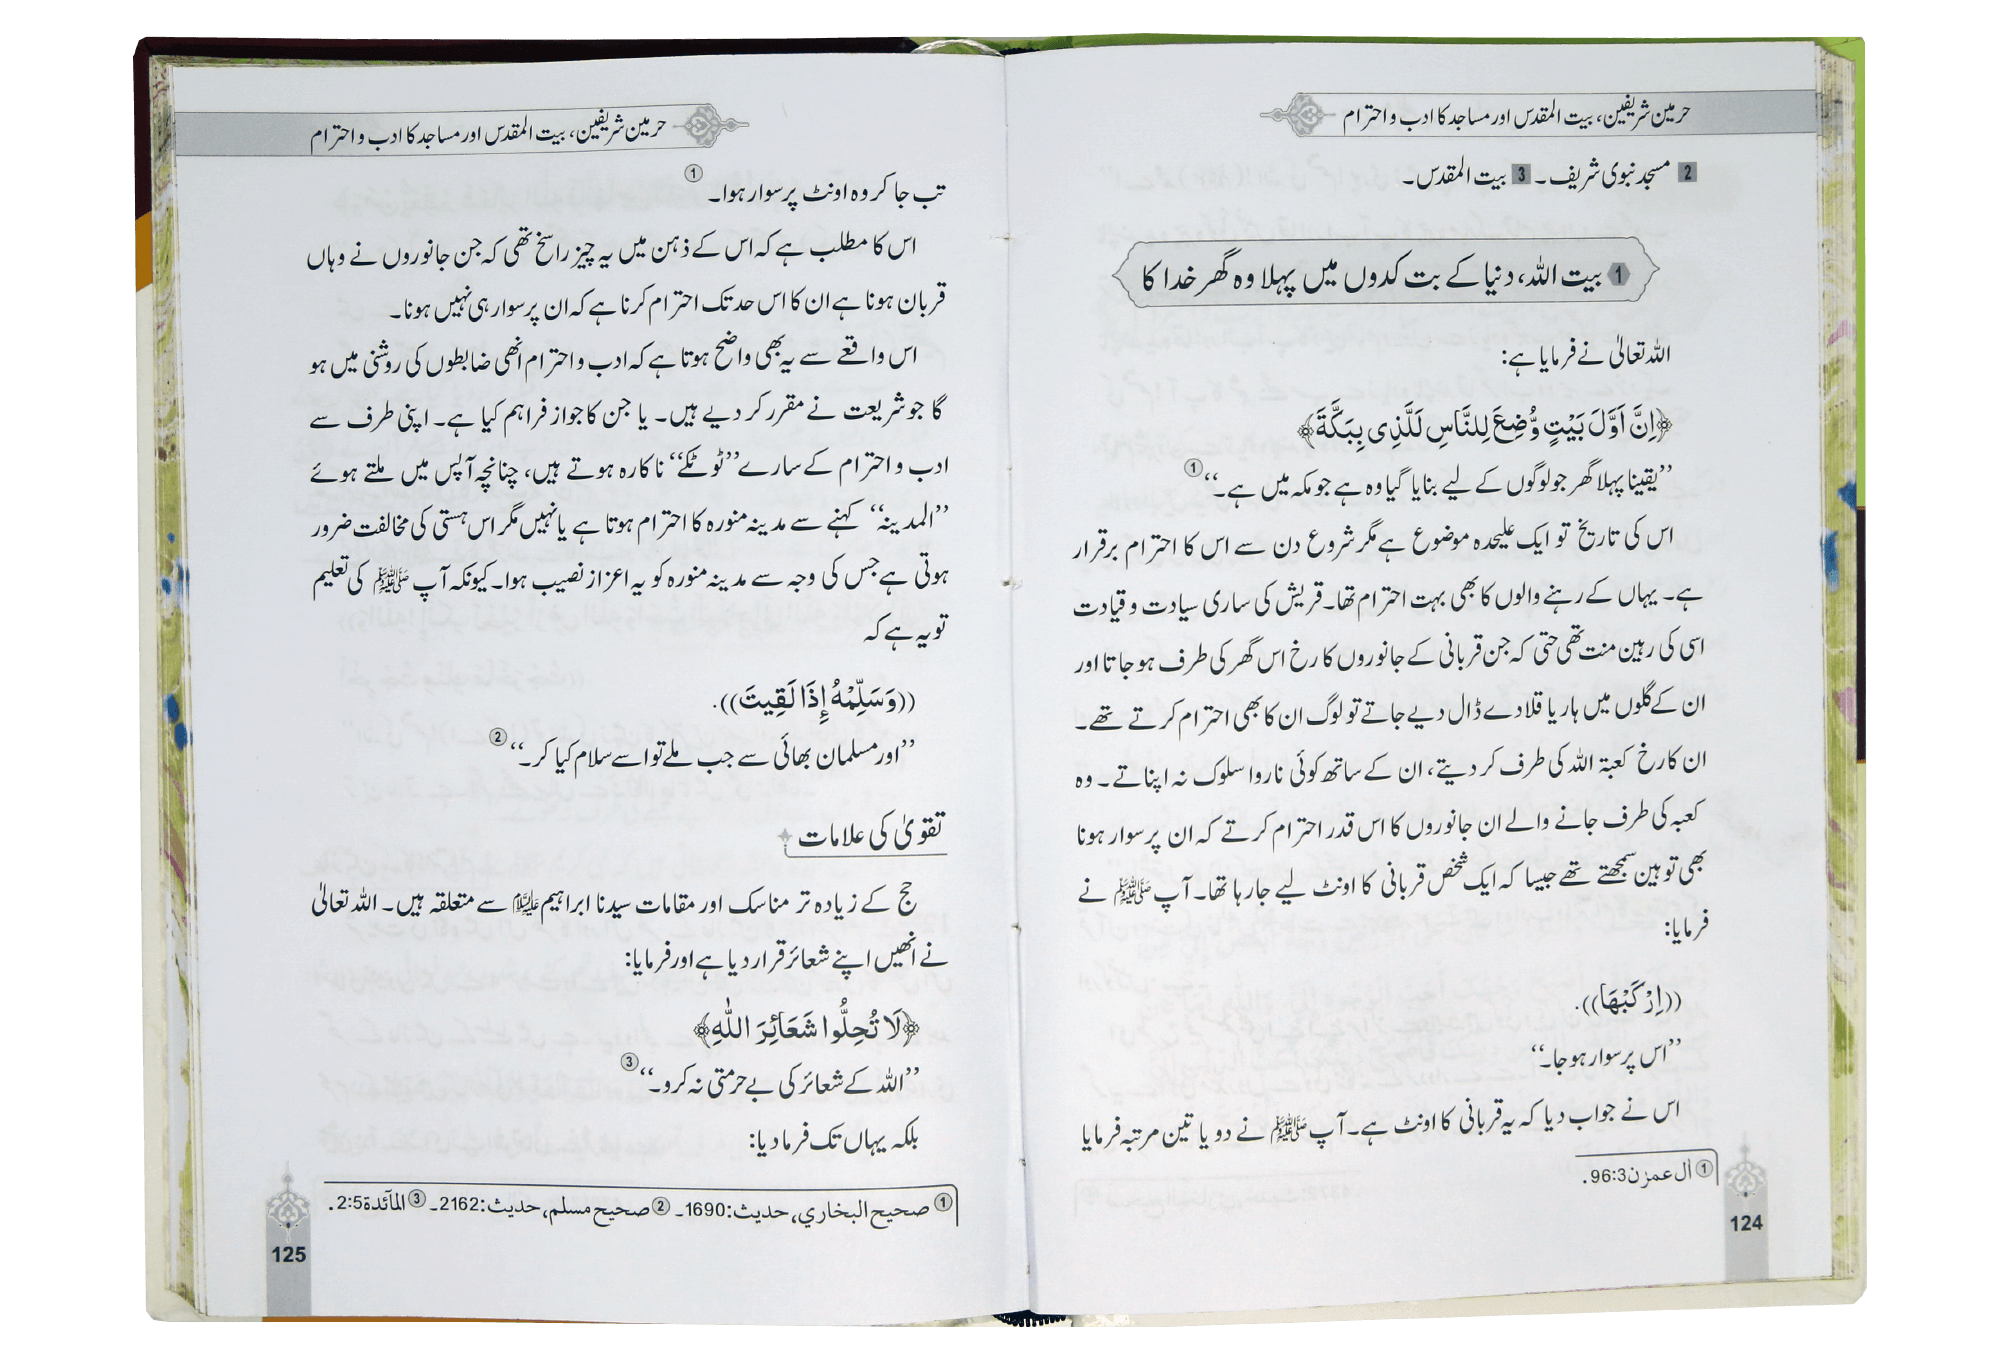 حرمین شریفین، بیت المقدس اور مساجد کا ادب و احترام
2 مسجد نبوی شریف۔ 3 بیت المقدس۔
1 بیت اللہ، دنیا کے بت کدوں میں پہلا وہ گھر خدا کا
اللہ تعالیٰ نے فرمایا ہے:
﴿اِنَّ اَوَّلَ بَيْتٍ وُّضِعَ لِلنَّاسِ لَلَّذِى بِبَكَّةَ﴾
’’یقینا پہلا گھر جو لوگوں کے لیے بنایا گیا وہ ہے جو مکہ میں ہے۔‘‘ ①
اس کی تاریخ تو ایک علیحدہ موضوع ہے مگر شروع دن سے اس کا احترام برقرار
ہے۔ یہاں کے رہنے والوں کا بھی بہت احترام تھا۔ قریش کی ساری سیادت و قیادت
اسی کی رہین منت تھی حتی کہ جن قربانی کے جانوروں کا رخ اس گھر کی طرف ہو جاتا اور
ان کے گلوں میں ہار یا قلادے ڈال دیے جاتے تو لوگ ان کا بھی احترام کرتے تھے۔
ان کا رخ کعبۃ اللہ کی طرف کر دیتے، ان کے ساتھ کوئی ناروا سلوک نہ اپناتے۔ وہ
کعبہ کی طرف جانے والے ان جانوروں کا اس قدر احترام کرتے کہ ان پر سوار ہونا
بھی توہین سمجھتے تھے جیسا کہ ایک شخص قربانی کا اونٹ لیے جا رہا تھا۔ آپ ﷺ نے
فرمایا:
((اِرْكَبْهَا)).
’’اس پر سوار ہو جا۔‘‘
اس نے جواب دیا کہ یہ قربانی کا اونٹ ہے۔ آپ ﷺ نے دو یا تین مرتبہ فرمایا
① اٰل عمرٰن 96:3.
124
حرمین شریفین، بیت المقدس اور مساجد کا ادب و احترام
تب جا کر وہ اونٹ پر سوار ہوا۔ ①
اس کا مطلب ہے کہ اس کے ذہن میں یہ چیز راسخ تھی کہ جن جانوروں نے وہاں
قربان ہونا ہے ان کا اس حد تک احترام کرنا ہے کہ ان پر سوار ہی نہیں ہونا۔
اس واقعے سے یہ بھی واضح ہوتا ہے کہ ادب و احترام انھی ضابطوں کی روشنی میں ہو
گا جو شریعت نے مقرر کر دیے ہیں۔ یا جن کا جواز فراہم کیا ہے۔ اپنی طرف سے
ادب و احترام کے سارے ’’ٹوٹکے‘‘ ناکارہ ہوتے ہیں، چنانچہ آپس میں ملتے ہوئے
’’المدینہ‘‘ کہنے سے مدینہ منورہ کا احترام ہوتا ہے یا نہیں مگر اس ہستی کی مخالفت ضرور
ہوتی ہے جس کی وجہ سے مدینہ منورہ کو یہ اعزاز نصیب ہوا۔ کیونکہ آپ ﷺ کی تعلیم
تو یہ ہے کہ
((وَسَلِّمْهُ إِذَا لَقِيتَ)).
’’اور مسلمان بھائی سے جب ملے تو اسے سلام کیا کر۔‘‘ ②
تقویٰ کی علامات
حج کے زیادہ تر مناسک اور مقامات سیدنا ابراہیم علیہ السلام سے متعلقہ ہیں۔ اللہ تعالیٰ
نے انھیں اپنے شعائر قرار دیا ہے اور فرمایا:
﴿لَا تُحِلُّوا شَعَآئِرَ اللّٰهِ﴾
’’اللہ کے شعائر کی بے حرمتی نہ کرو۔‘‘ ③
بلکہ یہاں تک فرما دیا:
① صحیح البخاري، حدیث:1690۔ ② صحیح مسلم، حدیث:2162۔ ③ المآئدۃ 2:5.
125